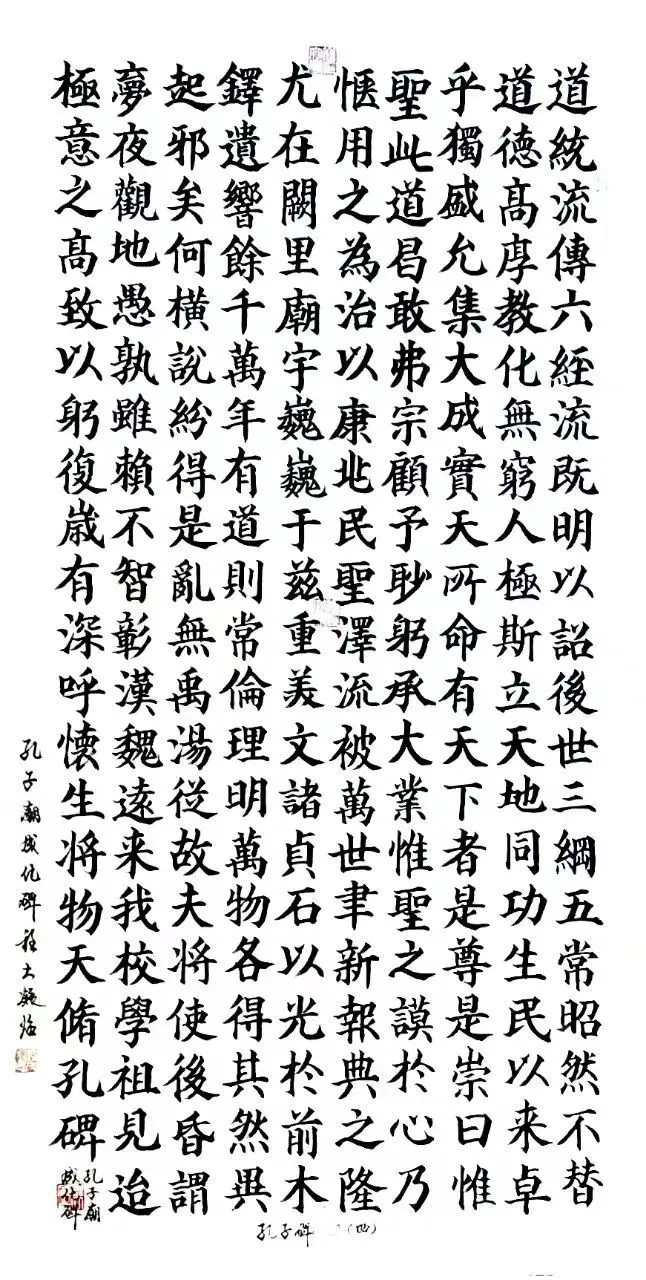 道統流傳六經流既明以詔後世三綱五常昭然不替
道德高厚教化無窮人極斯立天地同功生民以来卓
乎獨盛允集大成實天所命有天下者是尊是崇曰惟
聖此道昌敢弗宗顧予眇躬承大業惟聖之謨於心乃
愜用之為治以康兆民聖澤流被萬世聿新報典之隆
尤在闕里廟宇巍巍于兹重美文諸貞石以光於前木
鐸遺響餘千萬年有道則常倫理明萬物各得其然異
起邪矣何横說紛得是亂無禹湯従故夫将使後昏謂
夢夜觀地愚孰雖賴不智彰漢魏遠来我校學祖見迨
極意之高致以躬復歲有深呼懷生将物天脩孔碑
孔子廟
成化碑
孔子廟成化碑
孔子碑 (四)